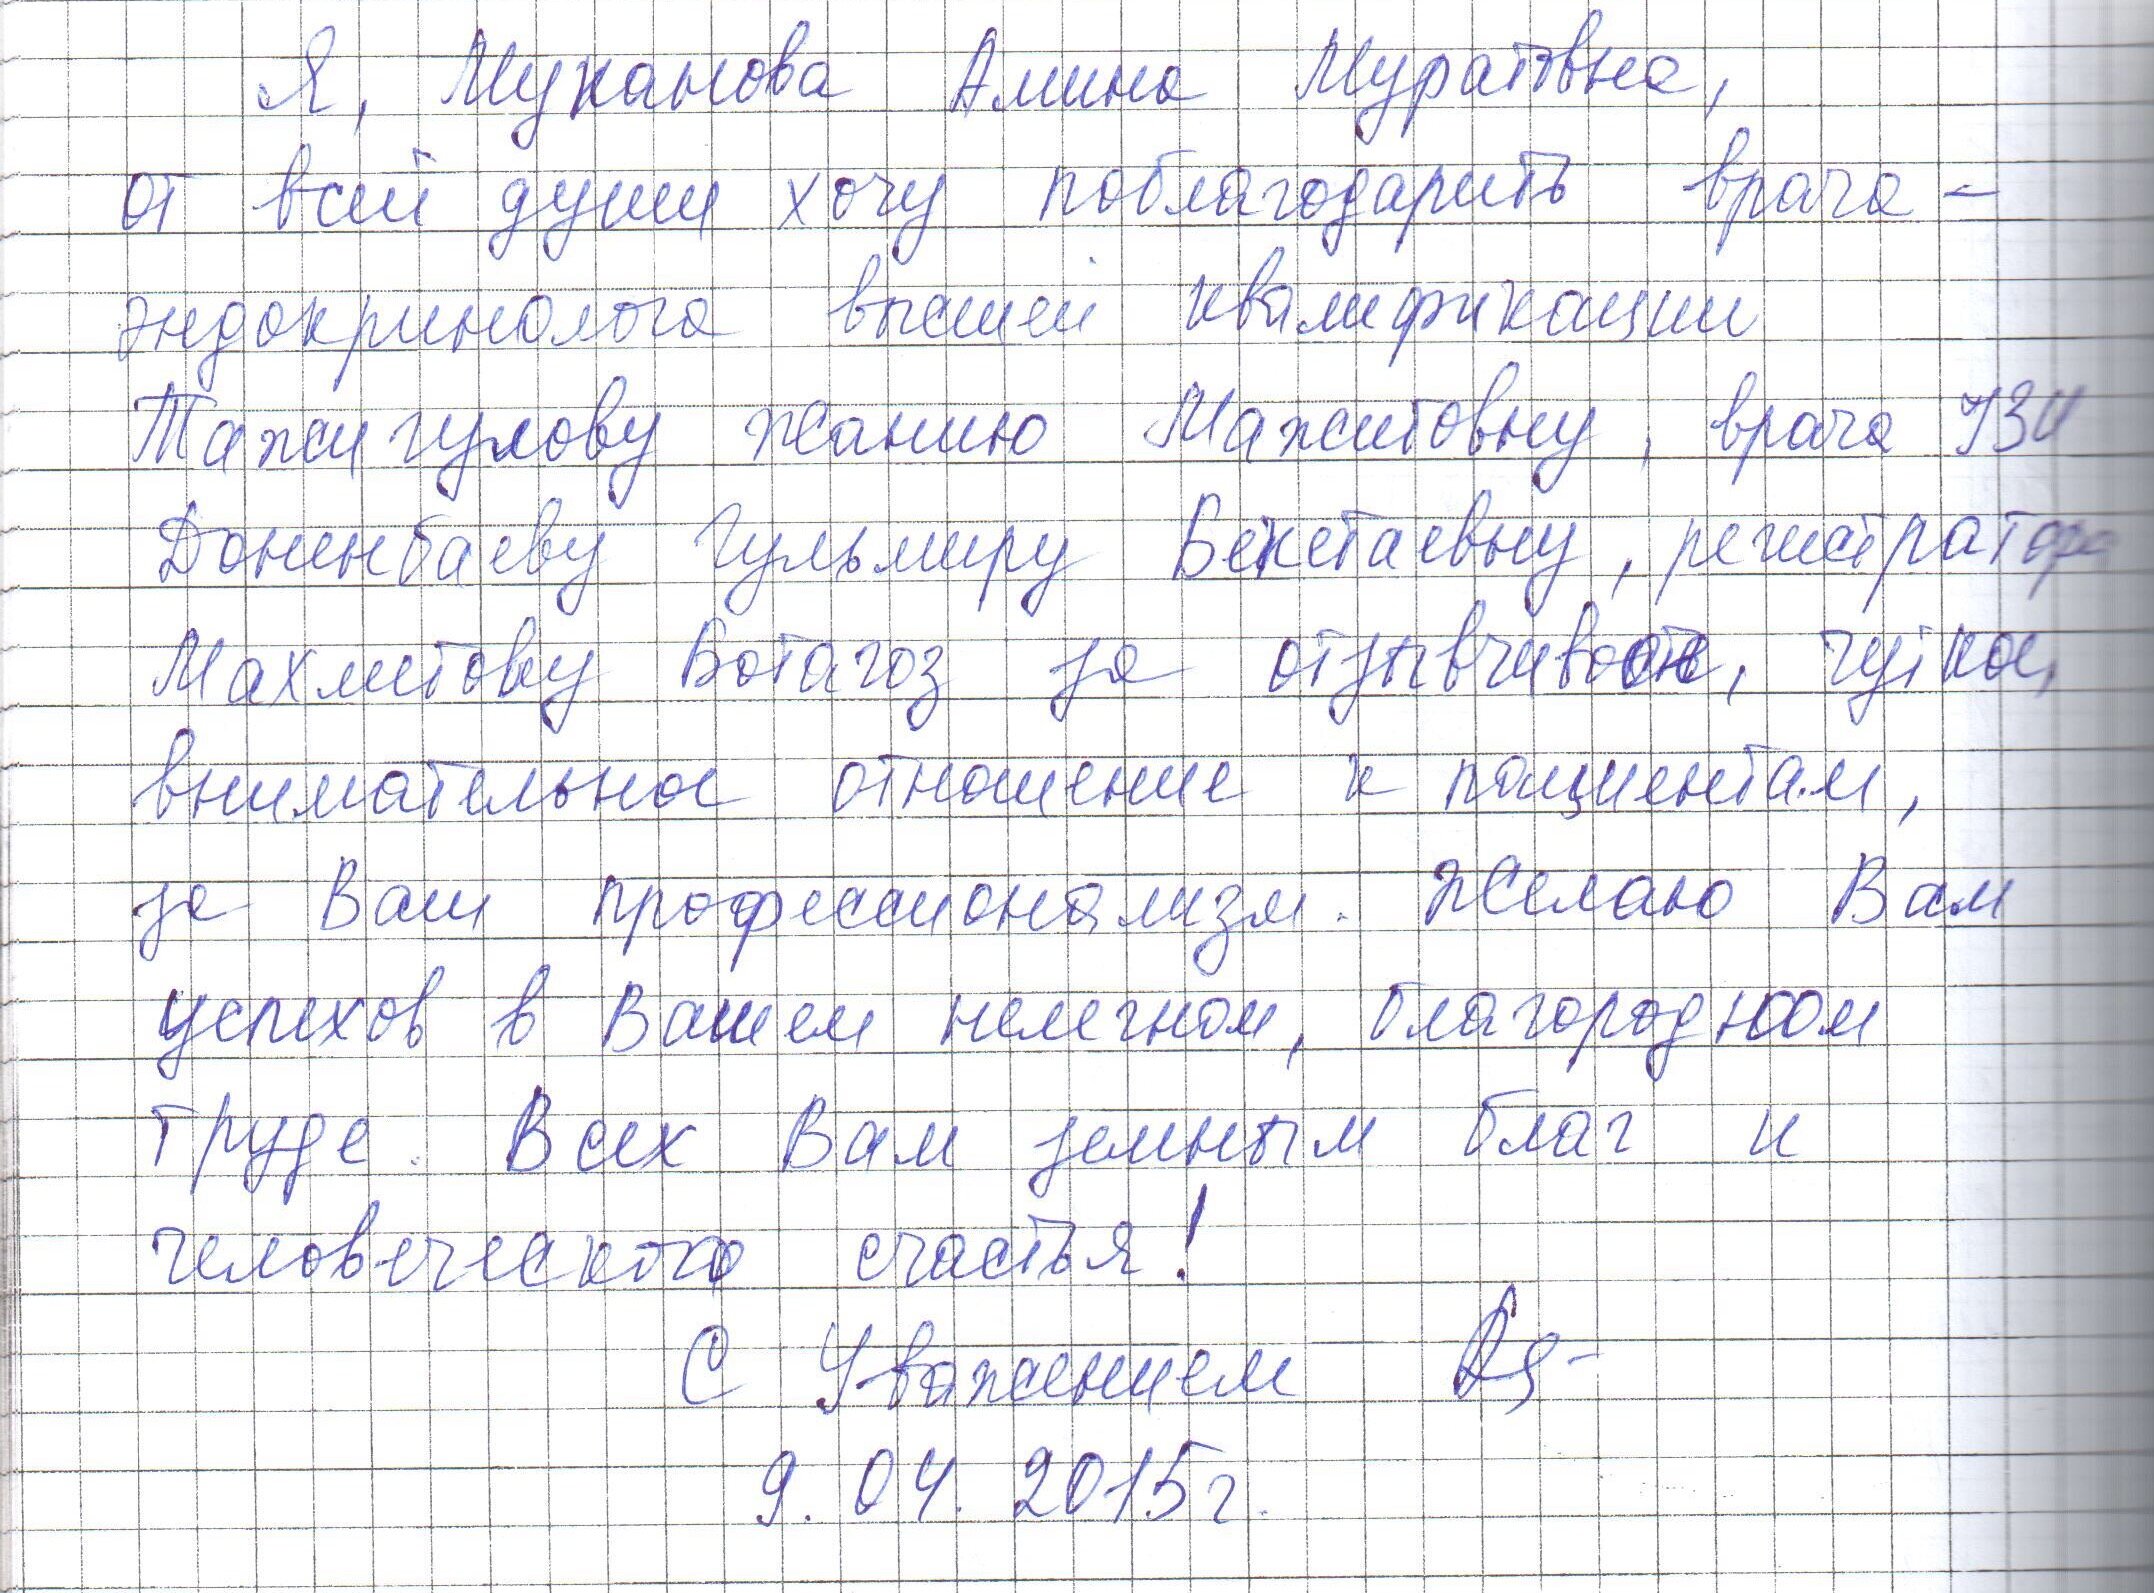 Я, Муканова Амина Муратовна,
от всей души хочу поблагодарить врача –
эндокринолога высшей квалификации
Тажигулову Жанию Мажитовну, врача УЗИ
Доненбаеву Гульмиру Бекетаевну, регистратора
Махметову Ботагоз за отзывчивость, чуткое,
внимательное отношение к пациентам,
за Ваш профессионализм. Желаю Вам
успехов в Вашем нелегком, благородном
труде. Всех Вам земным благ и
человеческого счастья!
С Уважением
9.04.2015г.